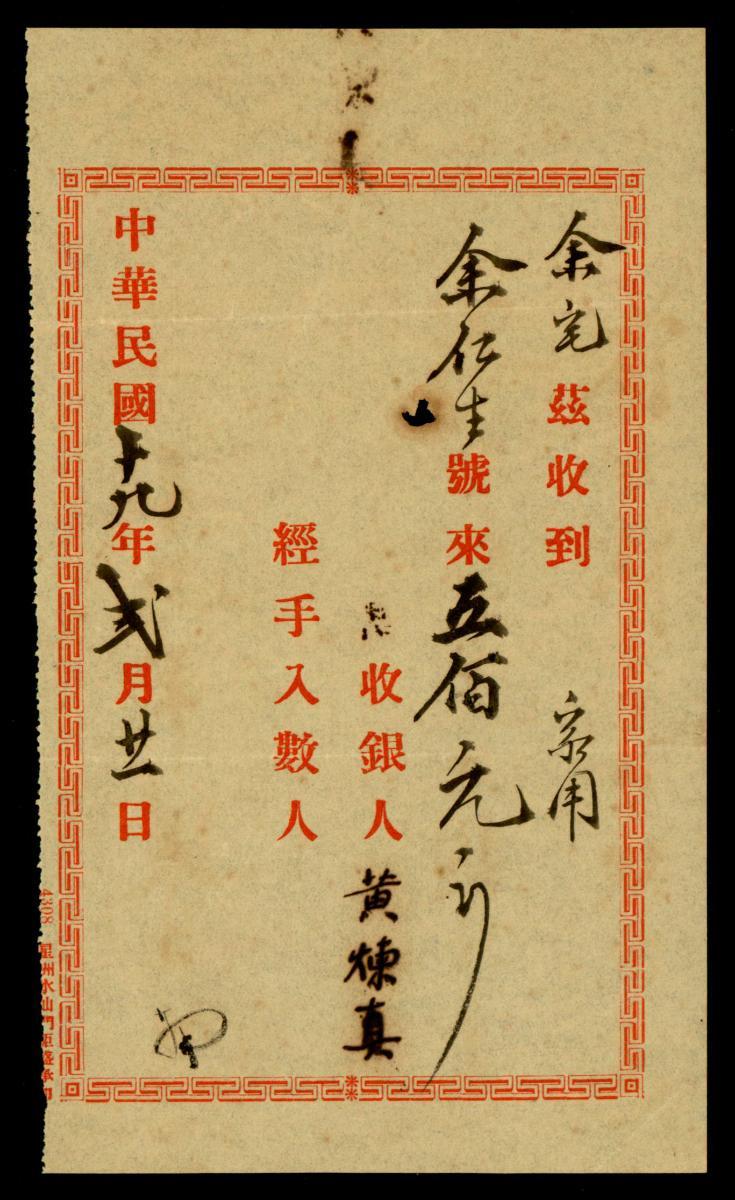 余宅茲收到 家用
余仁生號來五佰元正
收銀人 黃煉真
經手入數人
中華民國十九年弍月廿一日
4308 星洲水仙門